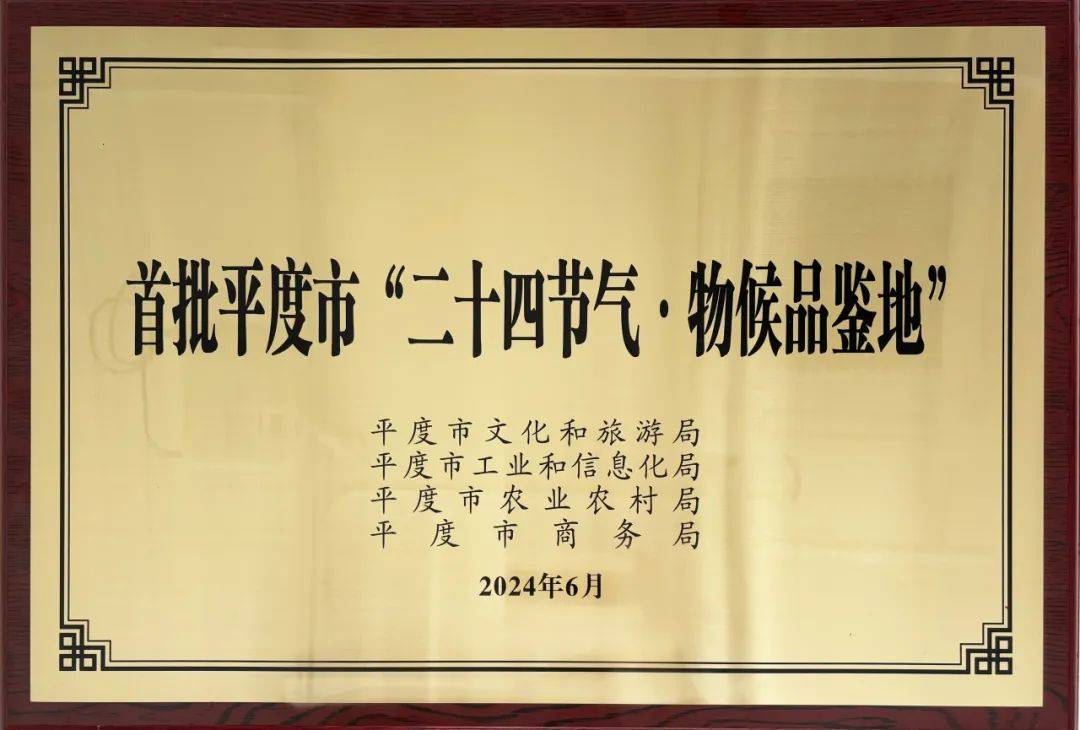 首批平度市“二十四节气·物候品鉴地”
平度市文化和旅游局
平度市工业和信息化局
平度市农业农村局
平度市商务局
2024年6月